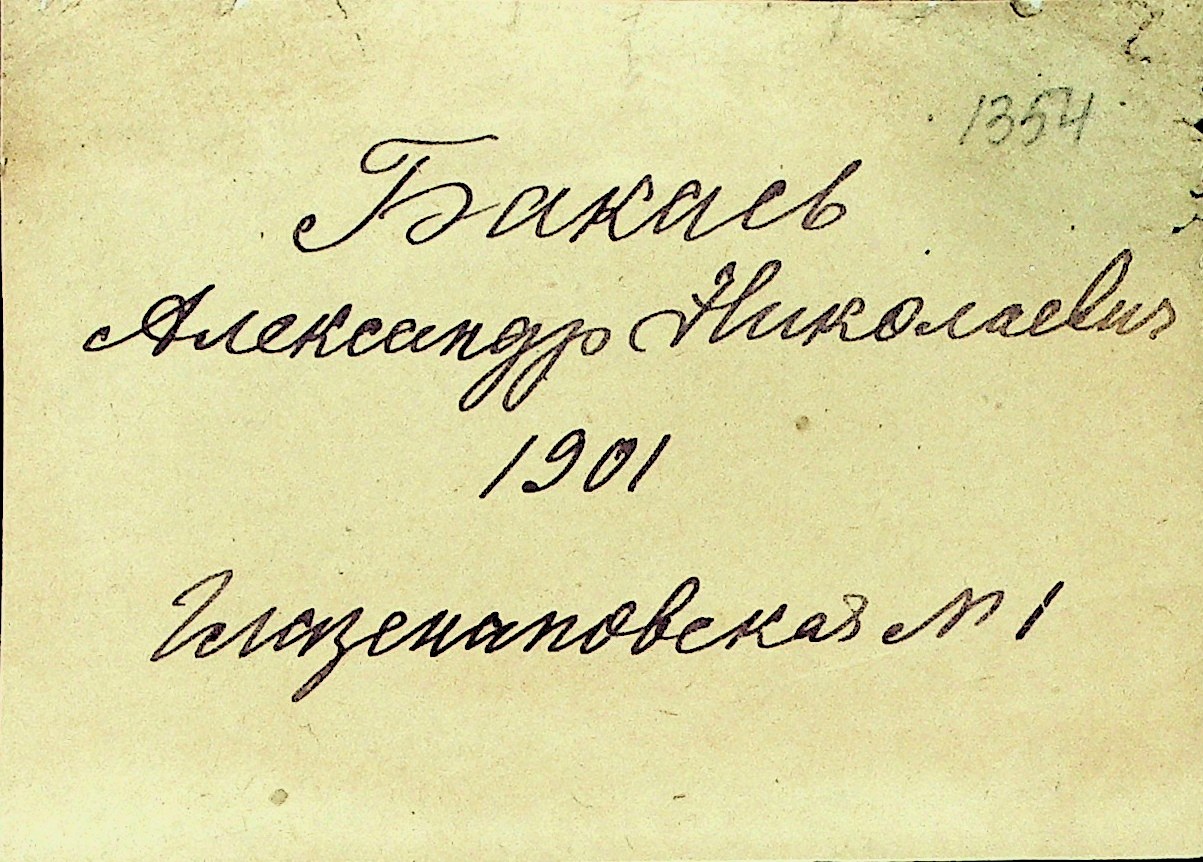 1354
Бакаев
Александр Николаевич
1901
Глазенаповская № 1